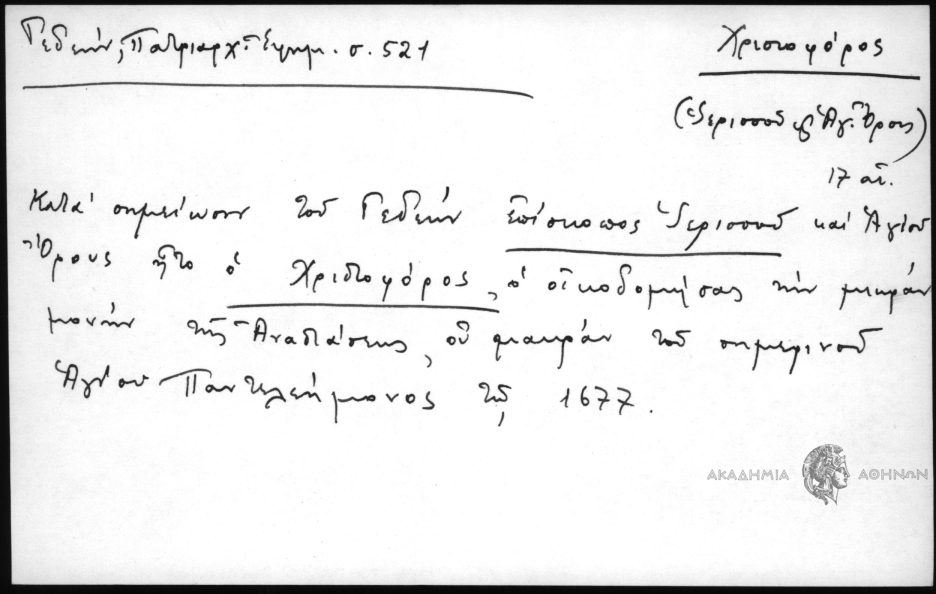 Γεδεών, Πατριαρχ. Ἐφημ. σ. 521
Χριστοφόρος
(Ἱερισσοῦ καὶ Ἁγ. Ὄρους)
17 αἰ.
Κατὰ σημείωσιν τοῦ Γεδεὼν ἐπίσκοπος Ἱερισσοῦ καὶ Ἁγίου
Ὄρους ἦτο ὁ Χριστοφόρος, ὁ οἰκοδομήσας τὴν μικρὰν
μονὴν τῆς Ἀναστάσεως, οὐ μακρὰν τοῦ σημερινοῦ
Ἁγίου Παντελεήμονος τῷ 1677.
ΑΚΑΔΗΜΙΑ ΑΘΗΝΩΝ